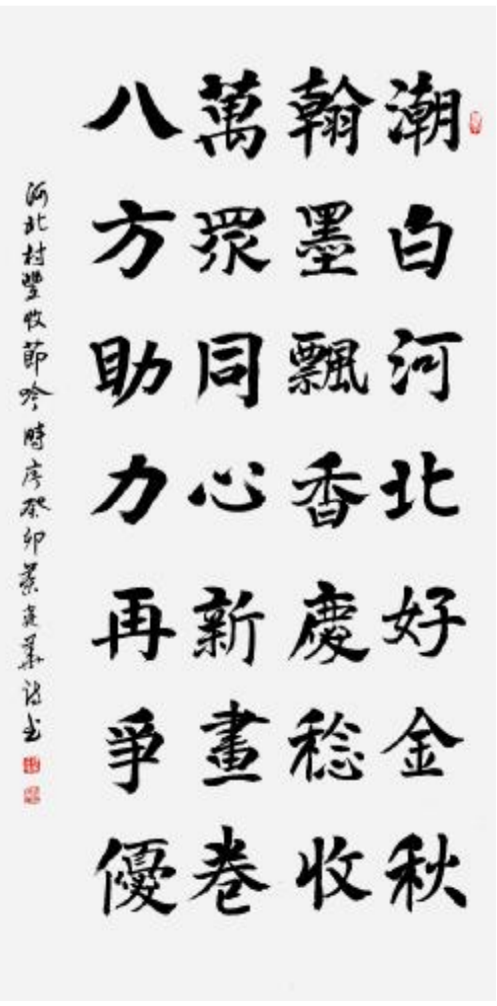 潮白河北好金秋
翰墨飄香慶稔收
萬眾同心新畫卷
八方助力再爭優
河北村豐收節吟時序癸卯葉建華詩書